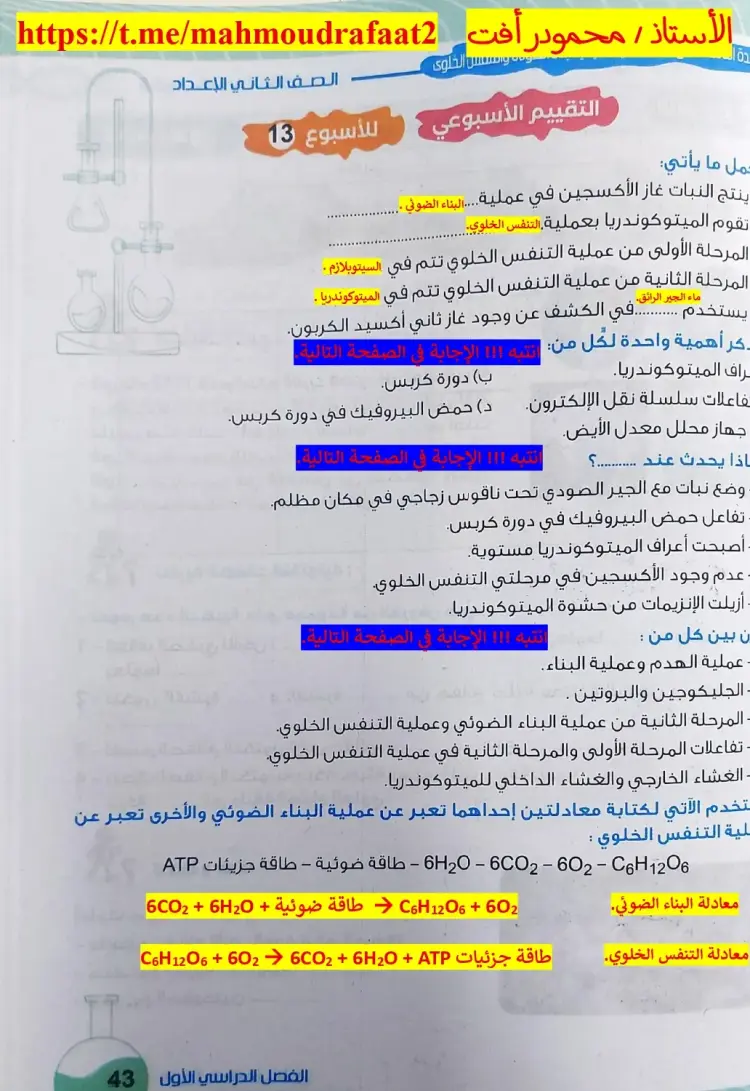 الأستاذ / محمود رأفت https://t.me/mahmoudrafaat2
الخلوى
الصف الثاني الإعداد
التقييم الأسبوعي للأسبوع 13
مل ما يأتي:
ينتج النبات غاز الأكسجين في عملية.... البناء الضوئي .
تقوم الميتوكوندريا بعملية التنفس الخلوي.
المرحلة الأولى من عملية التنفس الخلوي تتم في السيتوبلازم .
المرحلة الثانية من عملية التنفس الخلوي تتم في الميتوكوندريا .
يستخدم ........... ماء الجير الرائق. في الكشف عن وجود غاز ثاني أكسيد الكربون.
كر أهمية واحدة لكل من: انتبه !!! الإجابة في الصفحة التالية.
راف الميتوكوندريا. ب) دورة كربس.
فاعلات سلسلة نقل الإلكترون. د) حمض البيروفيك في دورة كربس.
جهاز محلل معدل الأيض.
اذا يحدث عند ...........؟ انتبه !!! الإجابة في الصفحة التالية.
- وضع نبات مع الجير الصودي تحت ناقوس زجاجي في مكان مظلم.
- تفاعل حمض البيروفيك في دورة كربس.
- أصبحت أعراف الميتوكوندريا مستوية.
- عدم وجود الأكسجين في مرحلتي التنفس الخلوي.
- أزيلت الإنزيمات من حشوة الميتوكوندريا.
ن بين كل من : انتبه !!! الإجابة في الصفحة التالية.
- عملية الهدم وعملية البناء.
- الجليكوجين والبروتين .
- المرحلة الثانية من عملية البناء الضوئي وعملية التنفس الخلوي.
- تفاعلات المرحلة الأولى والمرحلة الثانية في عملية التنفس الخلوي.
- الغشاء الخارجي والغشاء الداخلي للميتوكوندريا.
تخدم الآتي لكتابة معادلتين إحداهما تعبر عن عملية البناء الضوئي والأخرى تعبر عن
لية التنفس الخلوي :
C₆H₁₂O₆ – 6O₂ – 6CO₂ – 6H₂O – طاقة ضوئية – طاقة جزيئات ATP
معادلة البناء الضوئي. 6CO₂ + 6H₂O + طاقة ضوئية → C₆H₁₂O₆ + 6O₂
معادلة التنفس الخلوي. C₆H₁₂O₆ + 6O₂ → 6CO₂ + 6H₂O + ATP طاقة جزئيات
الفصل الدراسي الأول 43